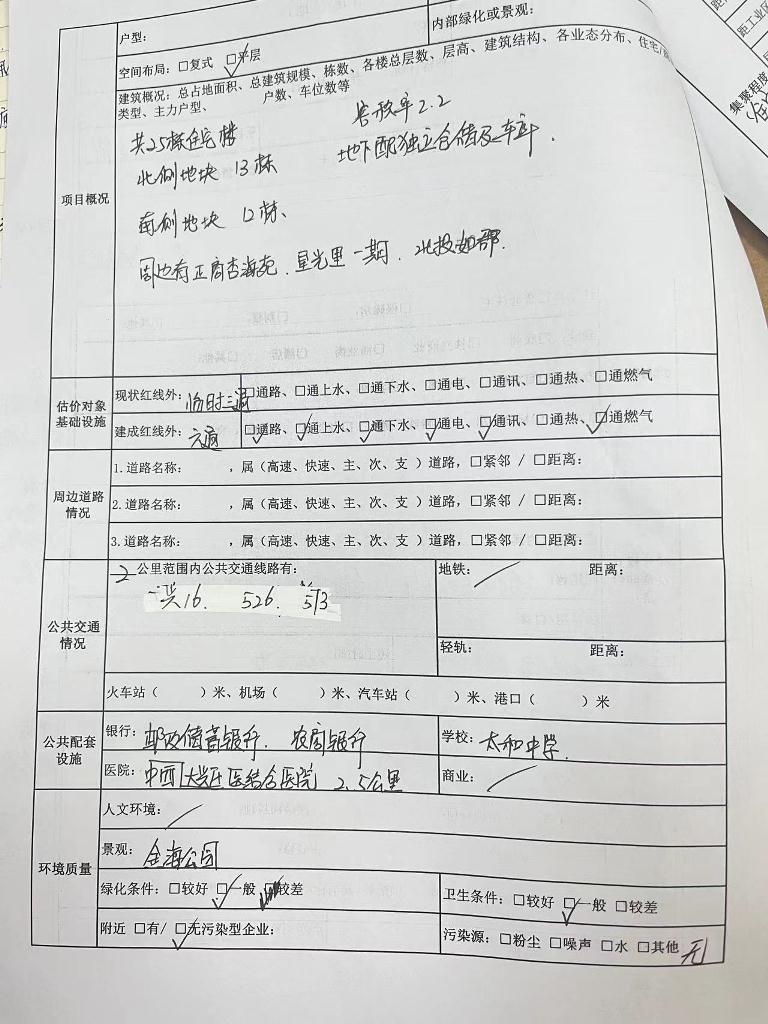 户型：
内部绿化或景观：
空间布局：□复式 ☑平层
建筑概况：总占地面积、总建筑规模、栋数、各楼总层数、层高、建筑结构、各业态分布、住宅/
类型、主力户型、 户数、车位数等
共25栋住宅楼 容积率2.2
北侧地块 13栋 地下配独立仓储及车库.
南侧地块 12栋、
周边有正商杏海苑.星光里一期.北投如郡.
项目概况
估价对象
基础设施
现状红线外：临时三通 □通路、□通上水、□通下水、□通电、□通讯、□通热、□通燃气
建成红线外：六通 ☑通路、☑通上水、☑通下水、☑通电、☑通讯、□通热、☑通燃气
周边道路
情况
1.道路名称： ，属（高速、快速、主、次、支 ）道路，□紧邻 / □距离：
2.道路名称： ，属（高速、快速、主、次、支 ）道路，□紧邻 / □距离：
3.道路名称： ，属（高速、快速、主、次、支 ）道路，□紧邻 / □距离：
公共交通
情况
2 公里范围内公共交通线路有：
兴16. 526. 573
地铁： 距离：
轻轨： 距离：
火车站（ ）米、机场（ ）米、汽车站（ ）米、港口（ ）米
公共配套
设施
银行：邮政储蓄银行. 农商银行
学校：太和中学.
医院：中西 大兴区医结合医院 2.5公里
商业：
环境质量
人文环境：
景观：金海公园
绿化条件：□较好 ☑一般 □较差
卫生条件：□较好 ☑一般 □较差
附近 □有/ ☑无污染型企业：
污染源：□粉尘 □噪声 □水 □其他 无
距工业区
集聚程度